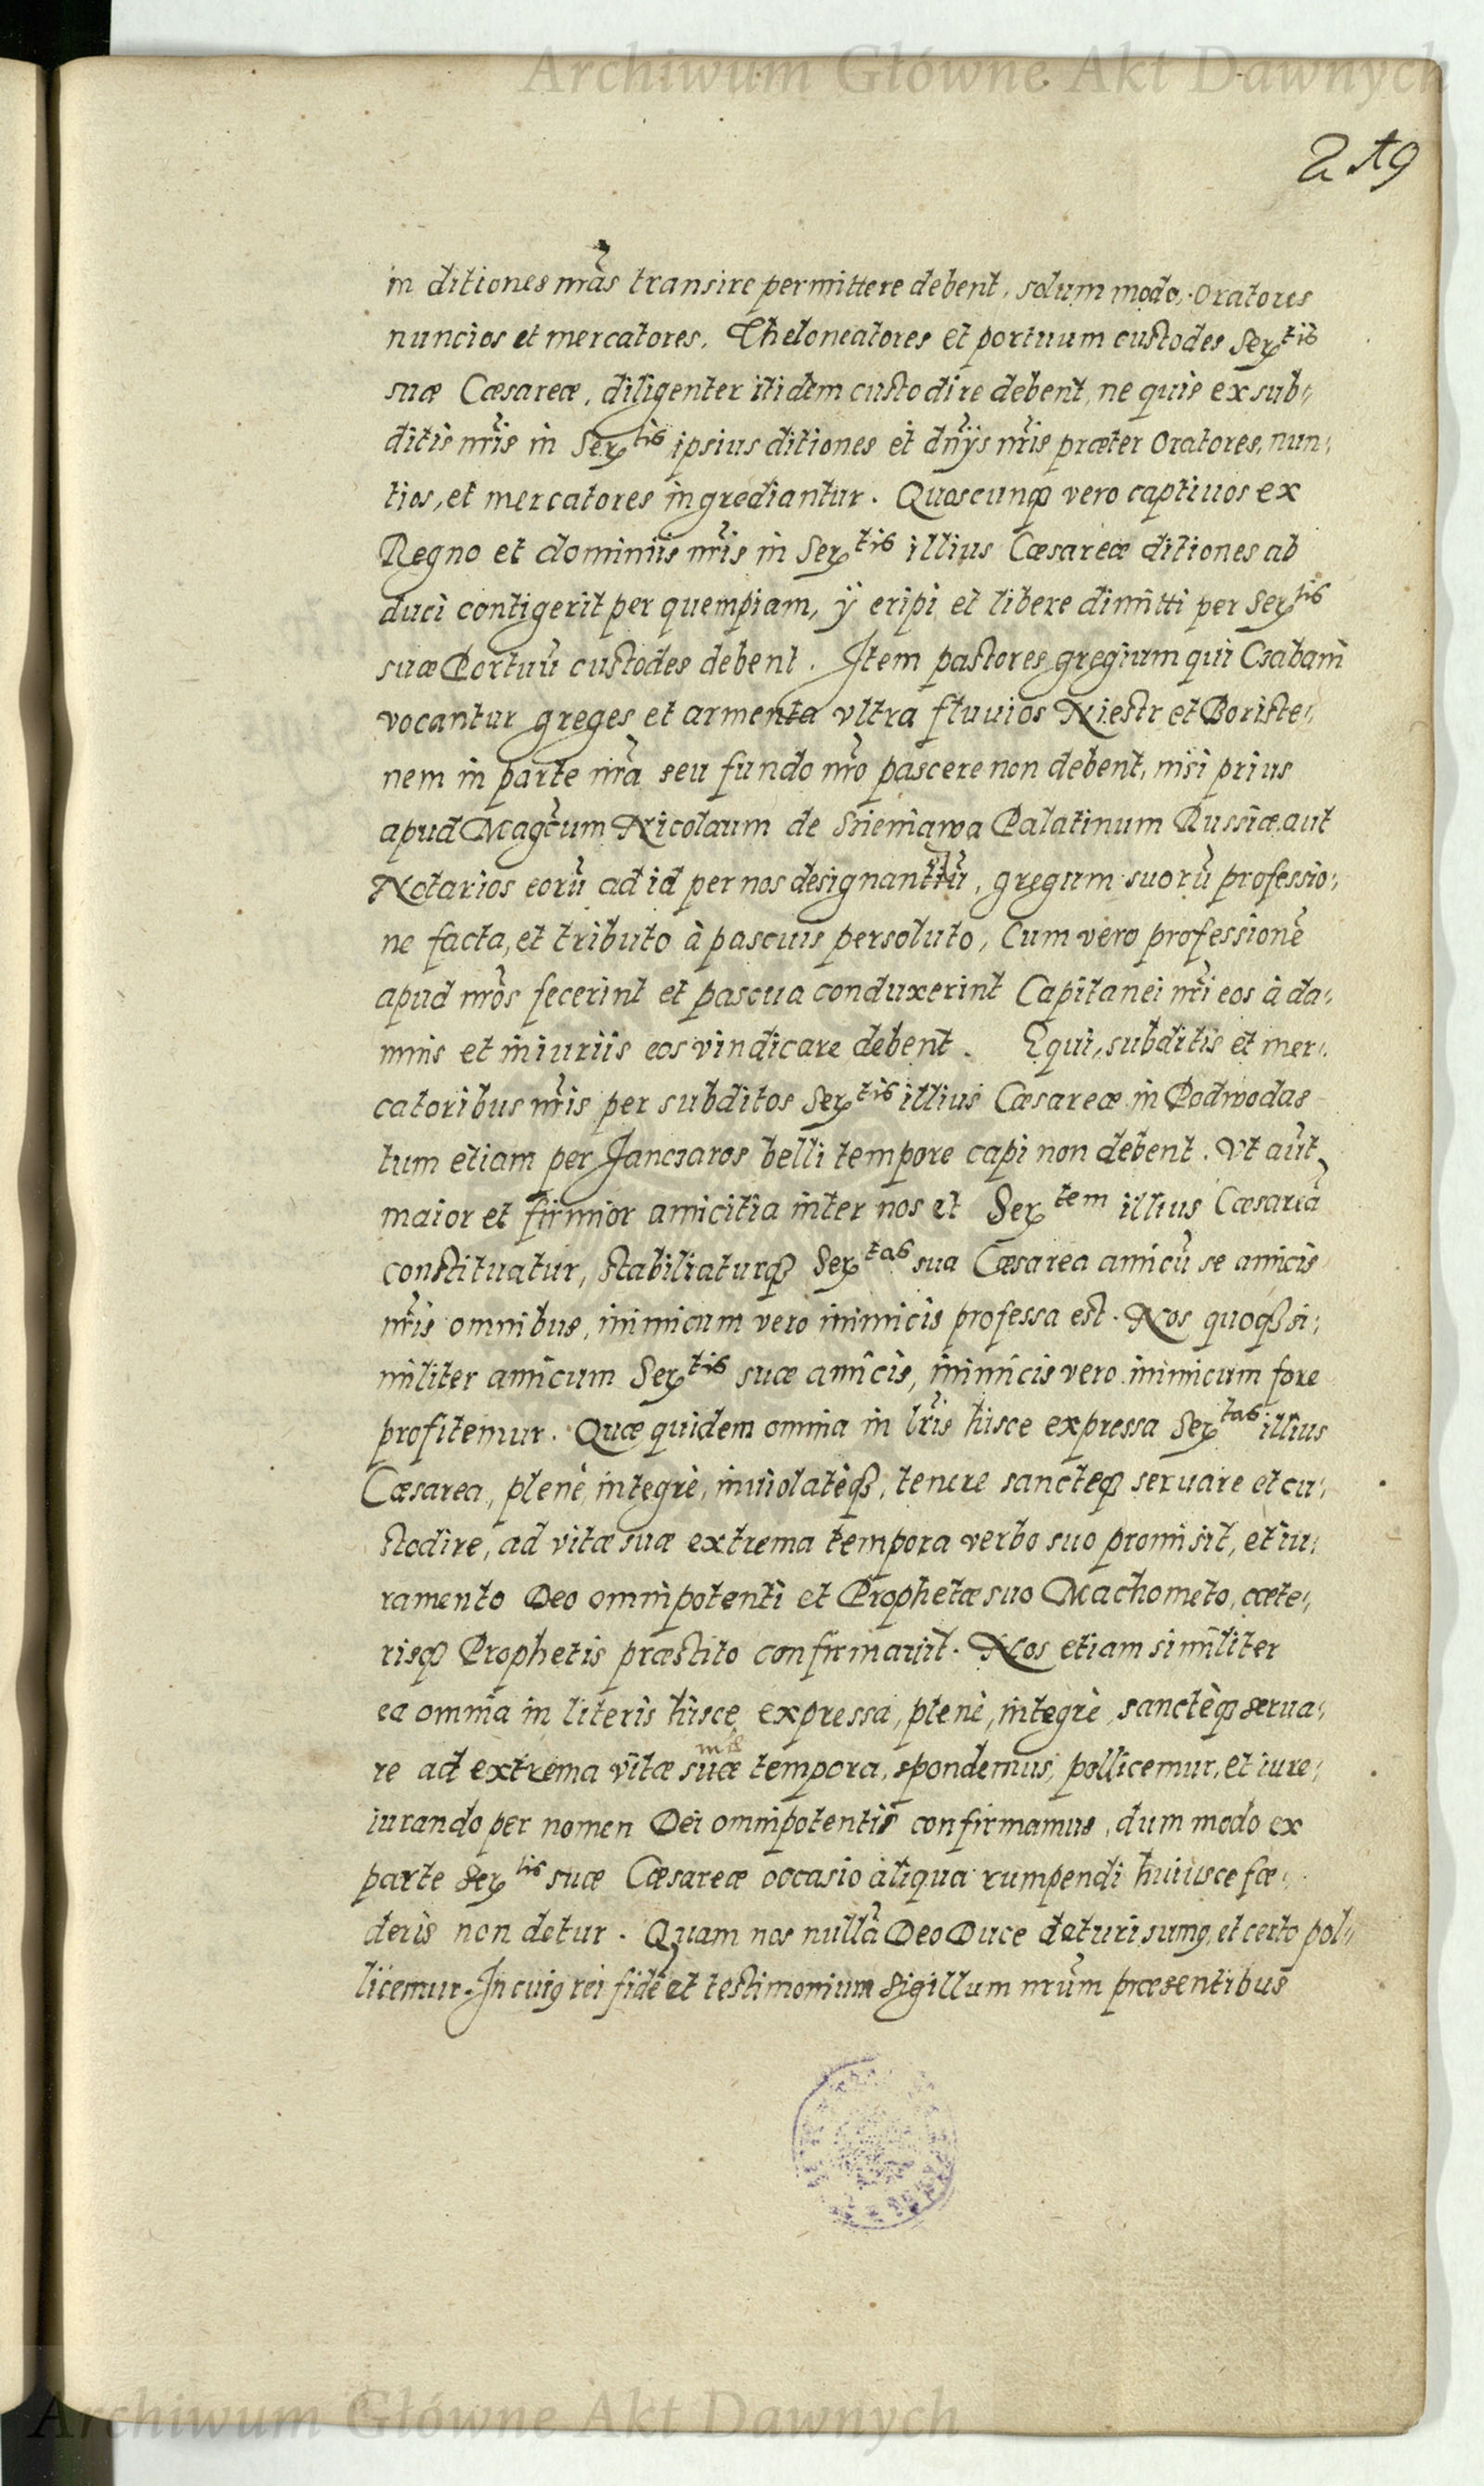 Archiwum Główne Akt Dawnych
219
in ditiones nr̃as transire permittere debent, solum modo, Oratores
nuncios et mercatores. Theloneatores et portuum custodes Ser^tis
suæ Cæsareæ, diligenter itidem custodire debent, ne quis ex sub:
ditis nr̃is in Ser^tis ipsius ditiones et dñijs nr̃is præter Oratores, nun:
tios, et mercatores ingrediantur. Quoscunq3 vero captiuos ex
Regno et dominiis nr̃is in Ser^tis illius Cæsareæ ditiones ab
duci contigerit per quempiam, ÿ eripi et libere dimitti per Ser^tis
suæ Portuũ custodes debent. Item pastores gregium qui Czabani
vocantur greges et armenta vltra fluuios Niestr et Boriste:
nem in parte nr̃a seu fundo nr̃o pascere non debent, nisi prius
apud Mag̃cum Nicolaum de Sieniawa Palatinum Russiæ aut
Notarios eorũ ad id per nos designantiũ, gregum suorũ professio:
ne facta, et tributo à pascuis persoluto, Cum vero professionẽ
apud nr̃os fecerint et pascua conduxerint Capitanei nr̃i eos à da:
mnis et iniuriis eos vindicare debent. Equi, subditis et mer:
catoribus nr̃is per subditos Ser^tis illius Cæsareæ in Podwodas
tum etiam per Janczaros belli tempore capi non debent. Vt aũt
maior et firmior amicitia inter nos et Ser^tem illius Cæsareã
constituatur, stabiliaturq3 Ser^tas sua Cæsarea amicũ se amicis
nr̃is omnibus, inimicum vero inimicis professa est. Nos quoq3 si:
militer amicum Ser^tis suæ amicis, inimicis vero inimicum fore
profitemur. Quæ quidem omnia in lr̃is hisce expressa Ser^tas illius
Cæsarea, plenè, integrè, inuiolatèq3, tenere sancteq3 seruare et cu:
stodire, ad vitæ suæ extrema tempora verbo suo promisit, et iu:
ramento Deo omnipotenti et Prophetæ suo Machometo, cæte:
risq3 Prophetis præstito confirmauit. Nos etiam similiter
ea omnia in literis hisce expressa, plenè, integrè, sanctèq3 serua:
re ad extrema vitæ suæ tempora, spondemus, pollicemur, et iure:
iurando per nomen Dei omnipotentis confirmamus, dum modo ex
parte Ser^tis suæ Cæsareæ occasio aliqua rumpendi huiusce fœ:
deris non detur. Quam nos nullã Deo Duce daturi sumq, et certo pol:
licemur. In cuiq rei fidẽ et testimonium sigillum nr̃um præsentibus
Archiwum Główne Akt Dawnych